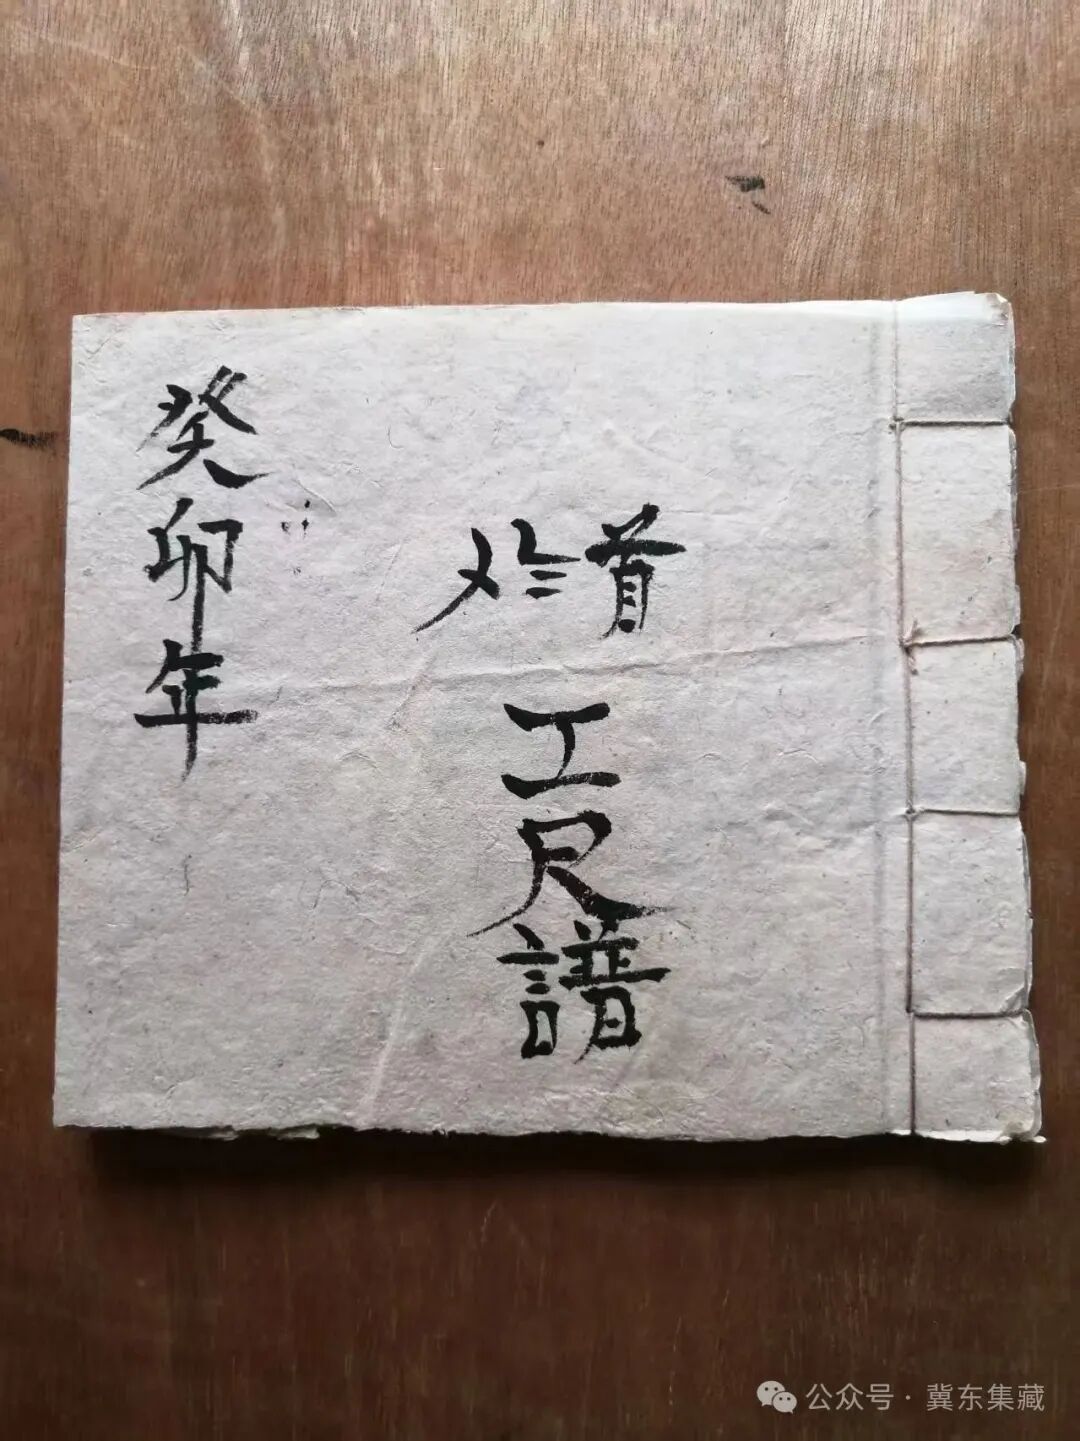 癸卯年
〤 首
工尺譜
公众号 · 冀东集藏